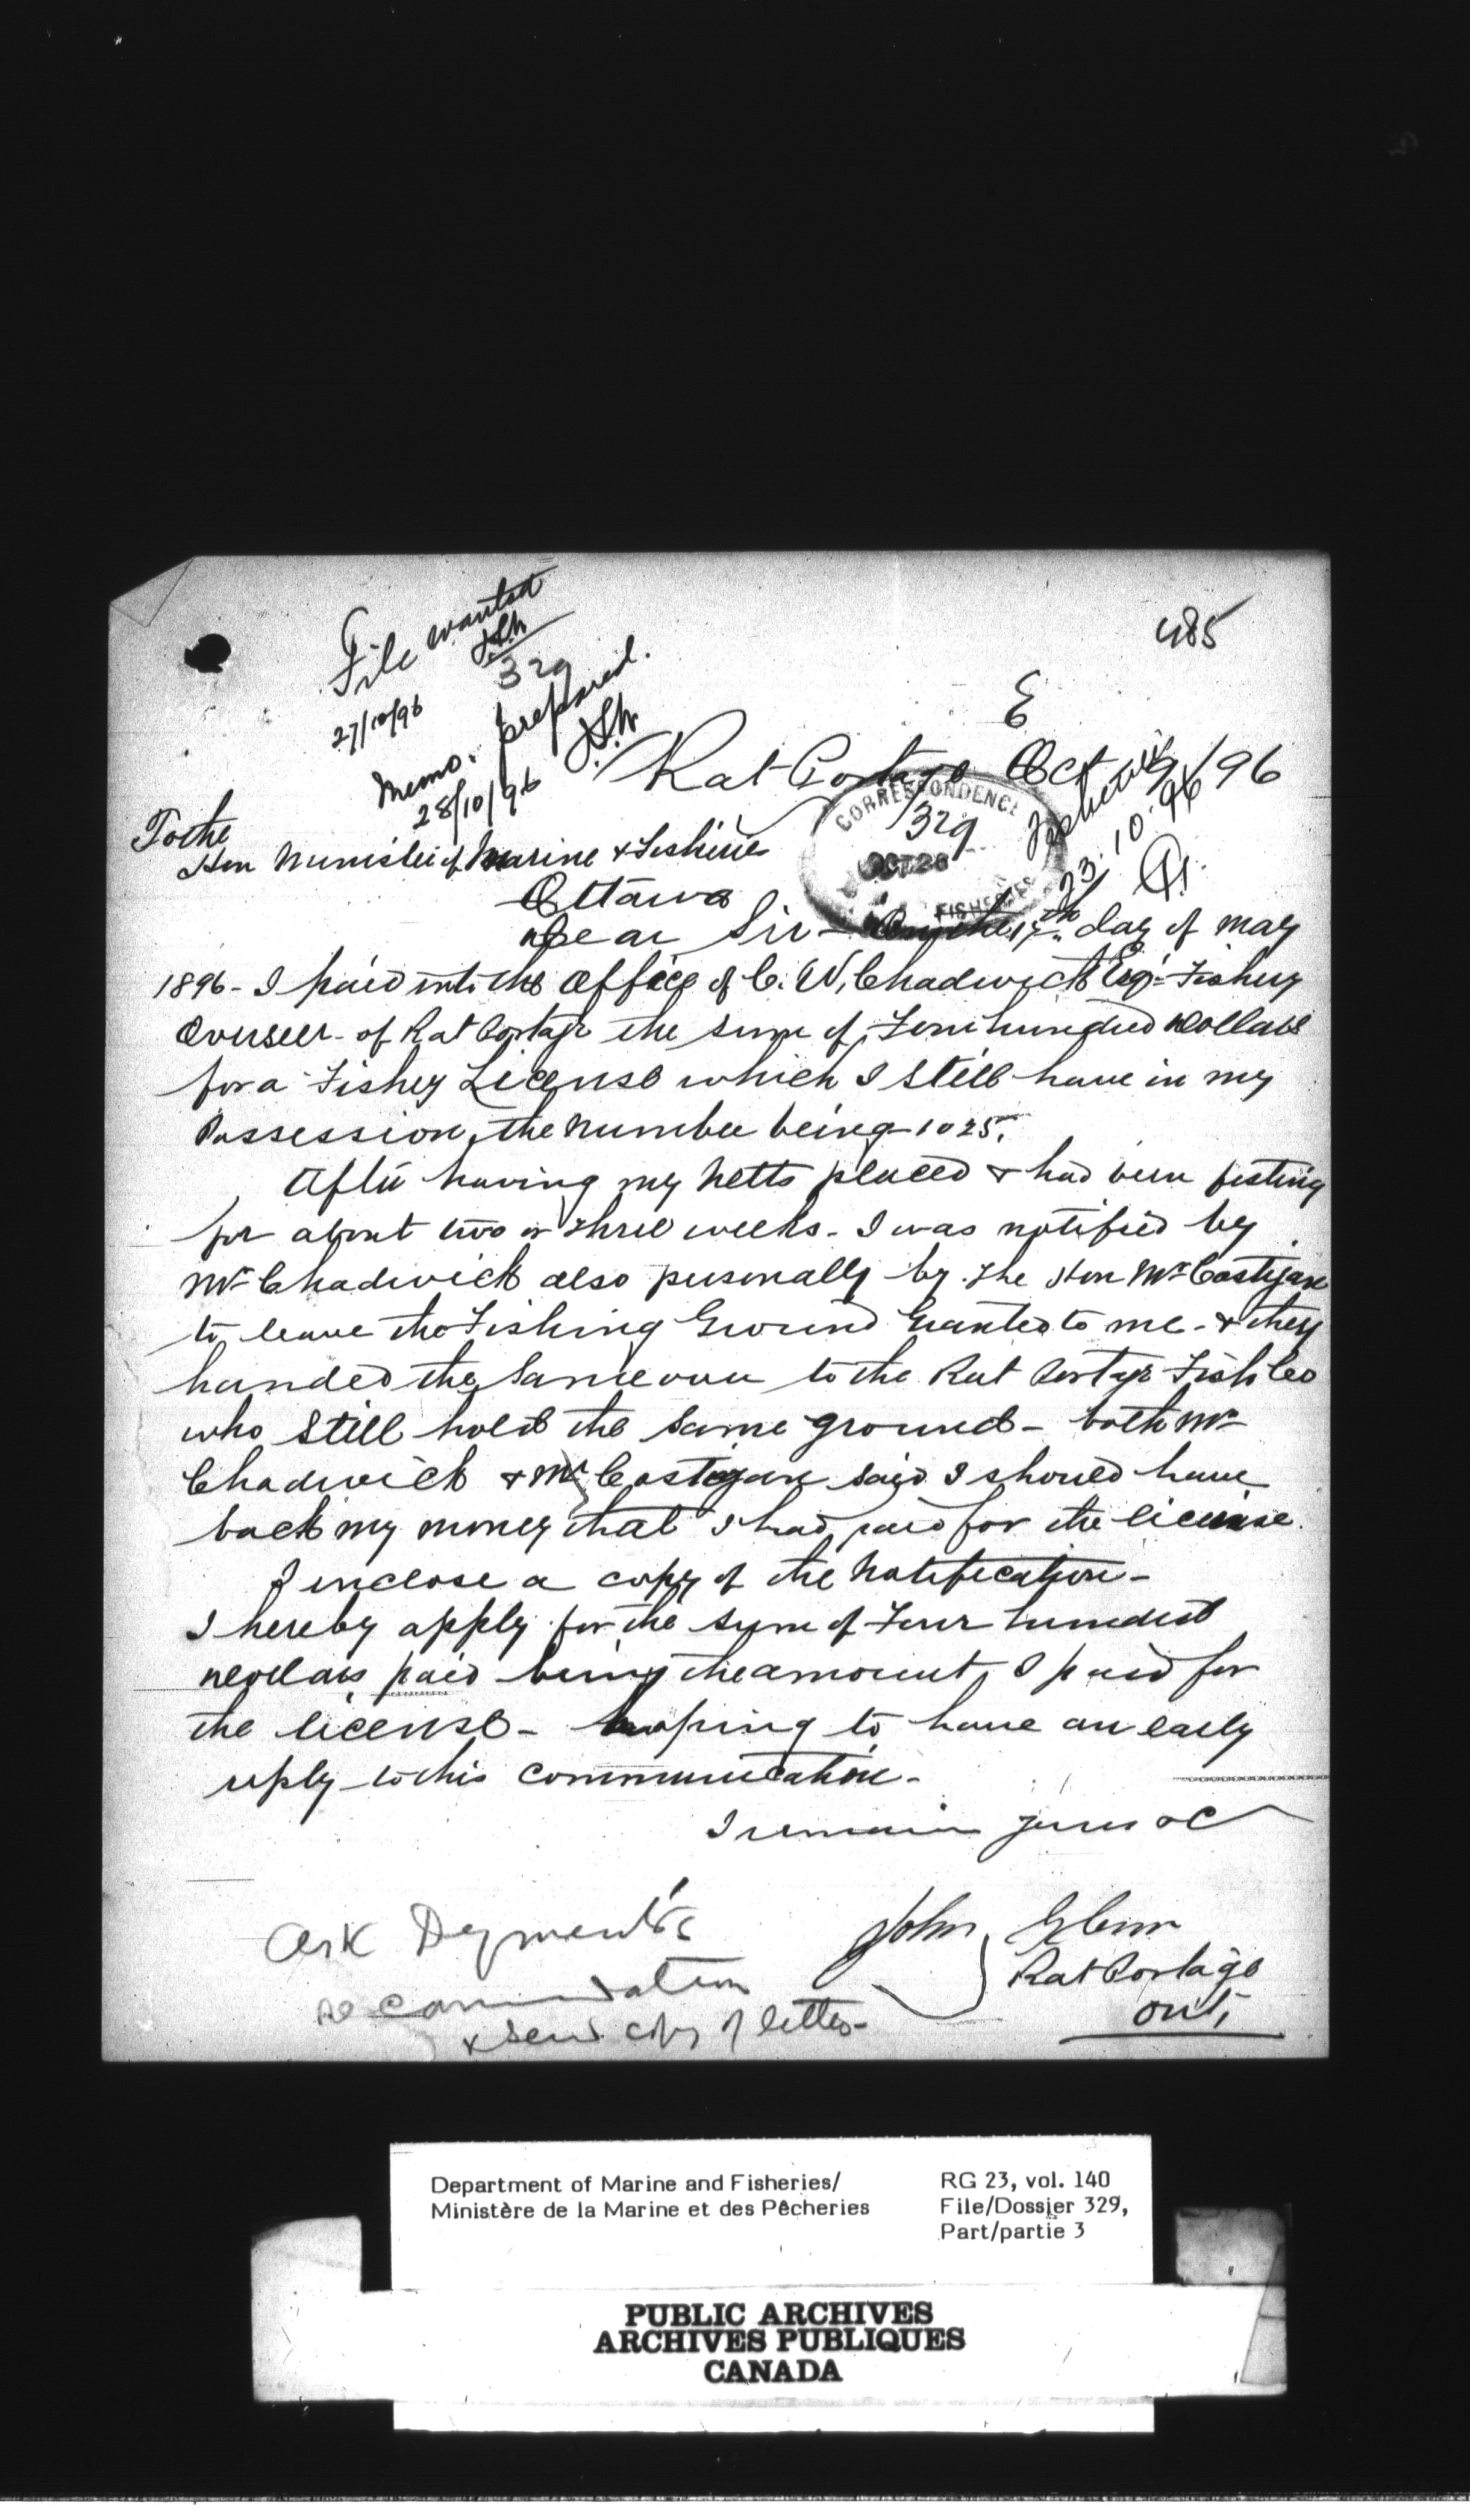 485
File wanted
329
27/10/96
Memo. prepared.
28/10/96
E
Rat Portage Oct /96
CORRESPONDENCE
329
OCT 26
FISHERIES
23.10.96
To the
Hon Minister of Marine & Fisheries
Ottawa
Dear Sir - On the 17th day of May
1896 - I paid into the Office of C. W. Chadwick Esq - Fishery
Overseer - of Rat Portage the sum of Four hundred Dollars
for a Fishey License which I still have in my
Possession, the Number being 1025.
After having my Netts placed & had been fisting
for about two or three weeks - I was notified by
Mr Chadwick also personally by the Hon Mr Costigan
to leave the Fishing Ground Granted to me - & they
handed the Same over to the Rat Portage Fish Co
who Still hold the Same ground - both Mr
Chadwick & Mr Costigan said I should have
back my money that I had paid for the license.
I inclose a copy of the Notification -
I hereby apply for the sum of Four hundred
Dollars paid being the amount I paid for
the license - hoping to have an early
reply to this Communication -
I remain yours &C
John Glenn
Rat Portage
Ont,
Ask Dyment's
recommendation
& send copy of letter -
Department of Marine and Fisheries/
Ministère de la Marine et des Pêcheries
RG 23, vol. 140
File/Dossier 329,
Part/partie 3
PUBLIC ARCHIVES
ARCHIVES PUBLIQUES
CANADA